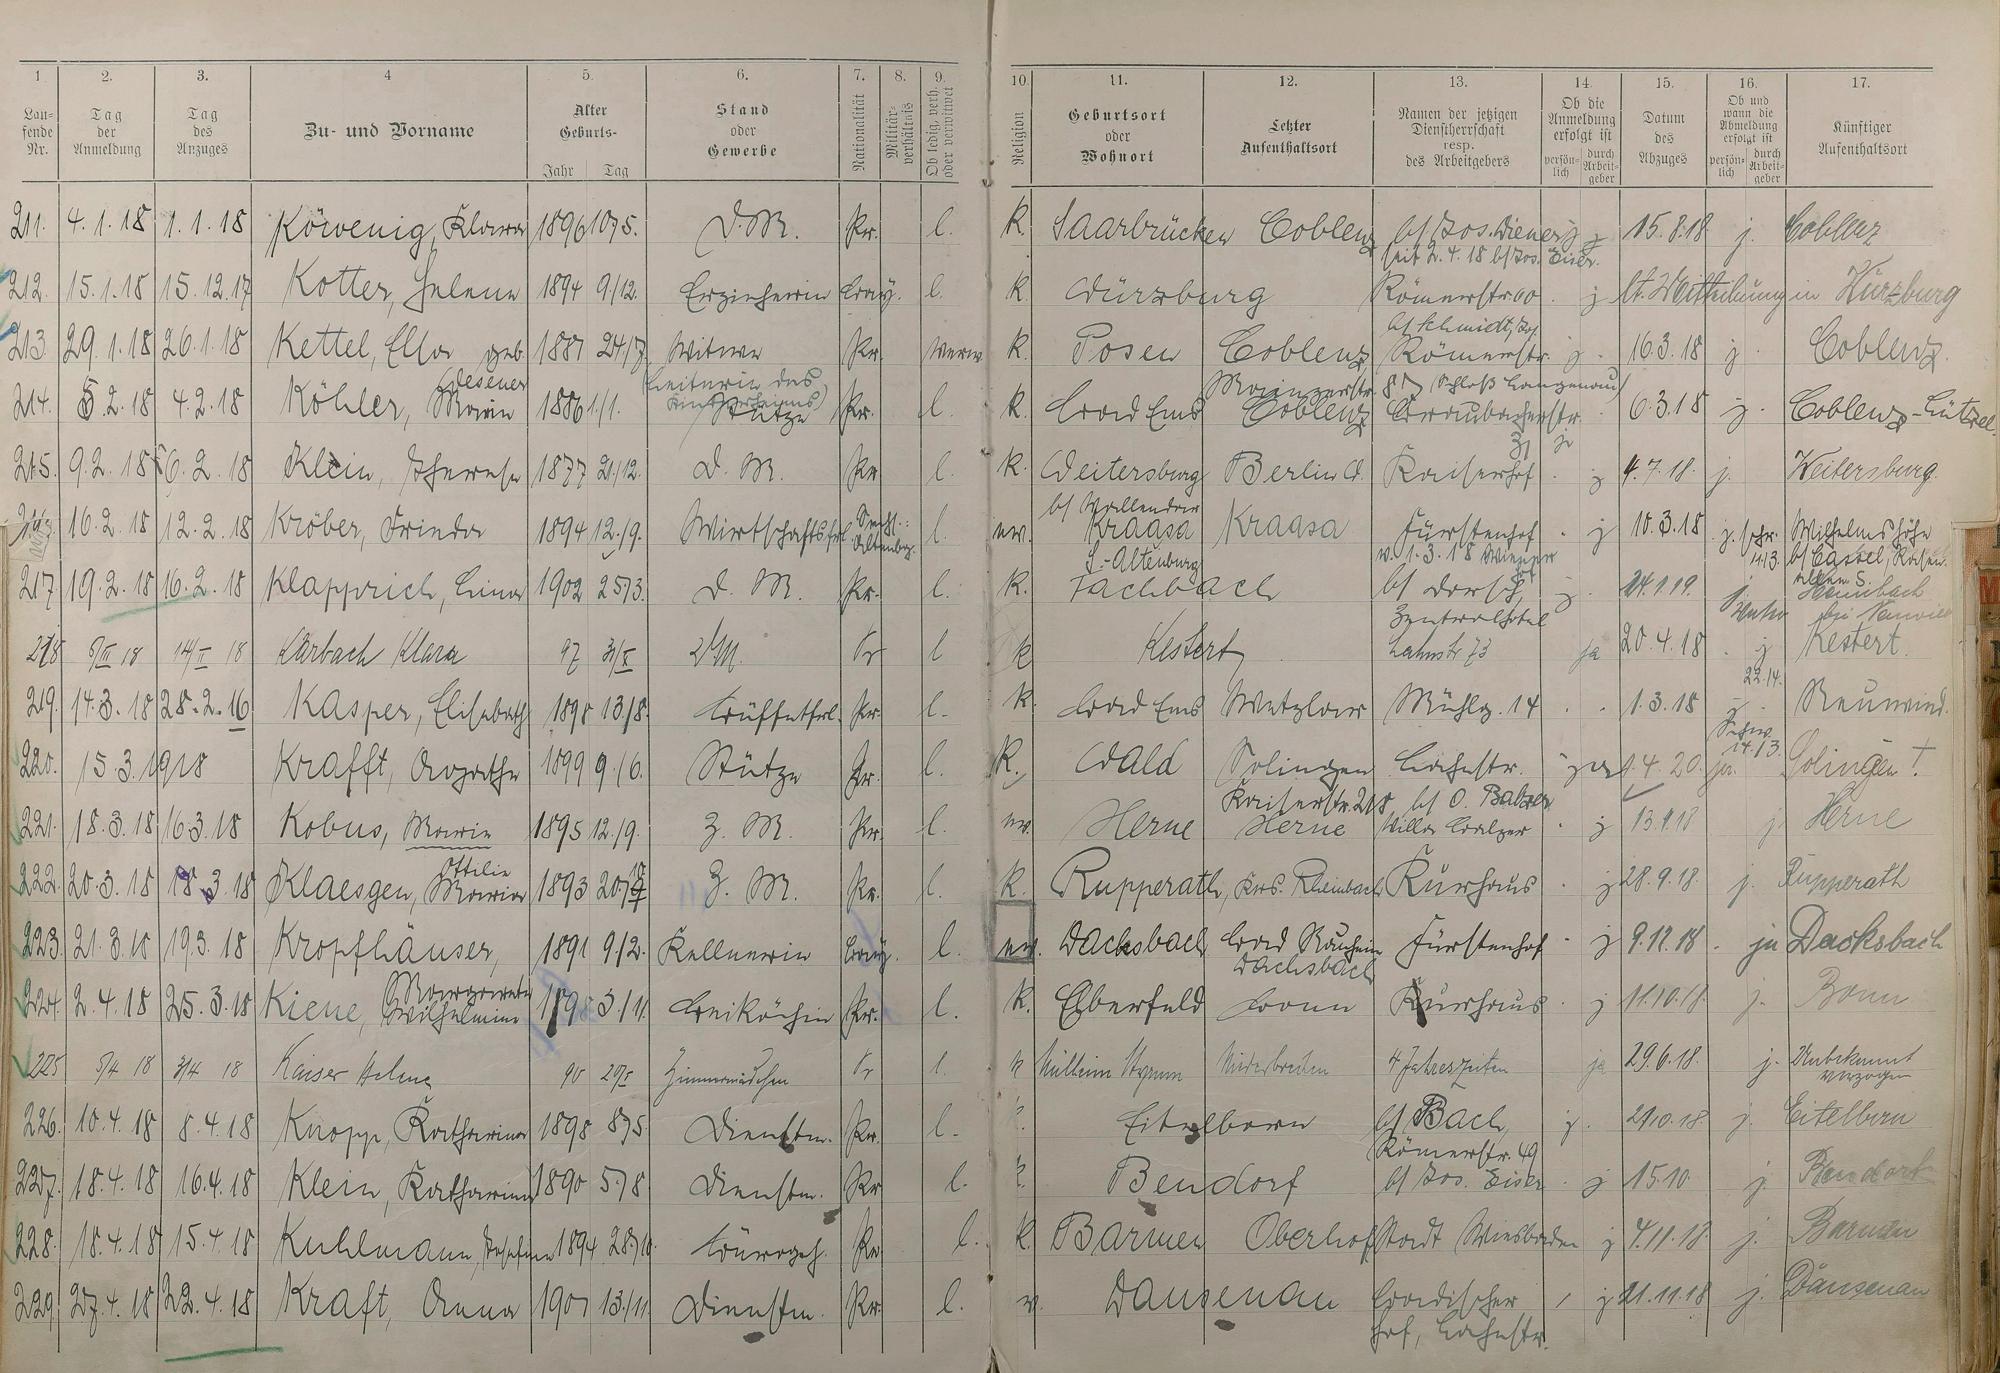 1. 2. 3. 4 5. 6. 7. 8. 9. 10. 11. 12. 13. 14. 15. 16. 17.
Lau-
fende
Nr.
Tag
der
Anmeldung
Tag
des
Anzuges
Zu- und Vorname
Alter
Geburts-
Jahr Tag
Stand
oder
Gewerbe
Nationalität
Militär-
verhältnis
Ob ledig, verh.
oder verwitwet
Religion
Geburtsort
oder
Wohnort
Letzter
Aufenthaltsort
Namen der jetzigen
Dienstherrschaft
resp.
des Arbeitgebers
Ob die
Anmeldung
erfolgt ist
persön-
lich
durch
Arbeit-
geber
Datum
des
Abzuges
Ob und
wann die
Abmeldung
erfolgt ist
persön-
lich
durch
Arbeit-
geber
Künftiger
Aufenthaltsort
211. 4.1.18 1.1.18 Köwenig, Klara 1896 10/5. D.M. Pr. l. k. Saarbrücken Coblenz b/ Jos. Diener j 15.8.18 j. Coblenz
seit 2.4.18 b/ Jos. Eiser.
212. 15.1.18 15.12.17 Kotter, Helene 1894 9/12. Erzieherin Bay. l. k. Würzburg Römerstr. 60 . j lt. Mitteilung in Würzburg
b/ Schmidt, Jos.
213 29.1.18 26.1.18 Kettel, Elsa geb. 1881 24/7 Witwe Pr. verw. k. Posen Coblenz Römerstr. j . 16.3.18 j . Coblenz
Wesener (Leiterin des Mainzerstr. 87 (Schloß Langenau)
214. 5.2.18 4.2.18 Köhler, Maria 1886 1/1. Stütze Pr. l. k. Bad Ems Coblenz Graubacherstr. . 6.3.18 j . Coblenz-Lützel.
215. 9.2.18 6.2.18 Klein, Therese 1877 21/12. D. M. Pr. l. k. Weitersburg Berlin W. Kaiserhof . j 4.7.18. j. Weitersburg.
b/ Vallendar
16.2.18 12.2.18 Kröber, Frieda 1894 12/9. Wirtschaftsfrl. l. ev. Kraasa Kraasa Fürstenhof . j 10.3.18 j. Wilhelmshöhe
S.-Altenburg v. 1.3.18 b/ Cassel,
217 19.2.18 16.2.18 Klapprich, Lina 1902 25/3. D. M. Pr. l. k. Fachbach b/ j . 24.1.19. j.
Zentralhotel
218 5/III 18 14/II 18 Karbach Klara 97 31/X Pr l k Kestert Lahnstr 73 ja 20.4.18 . j Kestert.
219. 14.3.18 28.2.16 Kasper, Elisabeth 1898 13/8. Büffetfrl. Pr. l. k. Bad Ems Wetzlar Mühlg. 14 . . 1.3.18 Neuwied.
220. 15.3.1918 Krafft, Agathe 1899 9/6. Stütze Pr. l. k. Wald Solingen Bachstr. 1.4.20. ja. Solingen
Kaiserstr. 218 b/ O. Balzer
221. 18.3.18 16.3.18 Kobus, Maria 1895 12/9. Z. M. Pr. l. ev. Herne Herne Villa Balzer . j 13.9.18 j. Herne
Ottilie
222. 20.3.18 18.3.18 Klaesgen, Maria 1893 Z. M. Pr. l. k. Rupperath, Krs. Rheinbach Kurhaus . j 28.9.18. j. Rupperath
223. 21.3.18 19.3.18 Kropfhäuser, 1891 9/2. Kellnerin Bay. l. ev. Dachsbach Bad Nauheim Fürstenhof . j 9.12.18 . ja Dacksbach
Margareta Dachsbach
224. 2.4.18 25.3.18 Kiene, Wilhelmine 1898 3/11. Beiköchin Pr. l. k. Elberfeld Bonn Kurhaus . j 11.10.18. j. Bonn
225 5/4 18 3/4 18 Kaiser Helene 90 20/5 Zimmermädchen Pr l. k Mülheim Styrum Niederbreden 4 Jahreszeiten ja 29.6.18. j. Unbekannt
verzogen
226. 10.4.18 8.4.18 Knopp, Katharina 1898 8/5. Dienstm. Pr. l. k. Eitelborn b/ Bach, j. 29.10.18. j. Eitelborn
Römerstr. 49
227. 18.4.18 16.4.18 Klein, Katharina 1890 5/8 Dienstm. Pr l. k. Bendorf b/ Jos. Eiser . j 15.10 j. Bendorf
228. 18.4.18 15.4.18 Kuhlmann, Josefine 1894 28/10. Pr l. k. Barmen Oberhof Stadt Wiesbaden j 4.11.18. j. Barmen
229. 27.4.18 22.4.18 Kraft, Anna 1901 13/11. Dienstm. Pr. l. ev. Dausenau Badischer j 21.11.18 j. Dausenau
Hof, Bachstr.